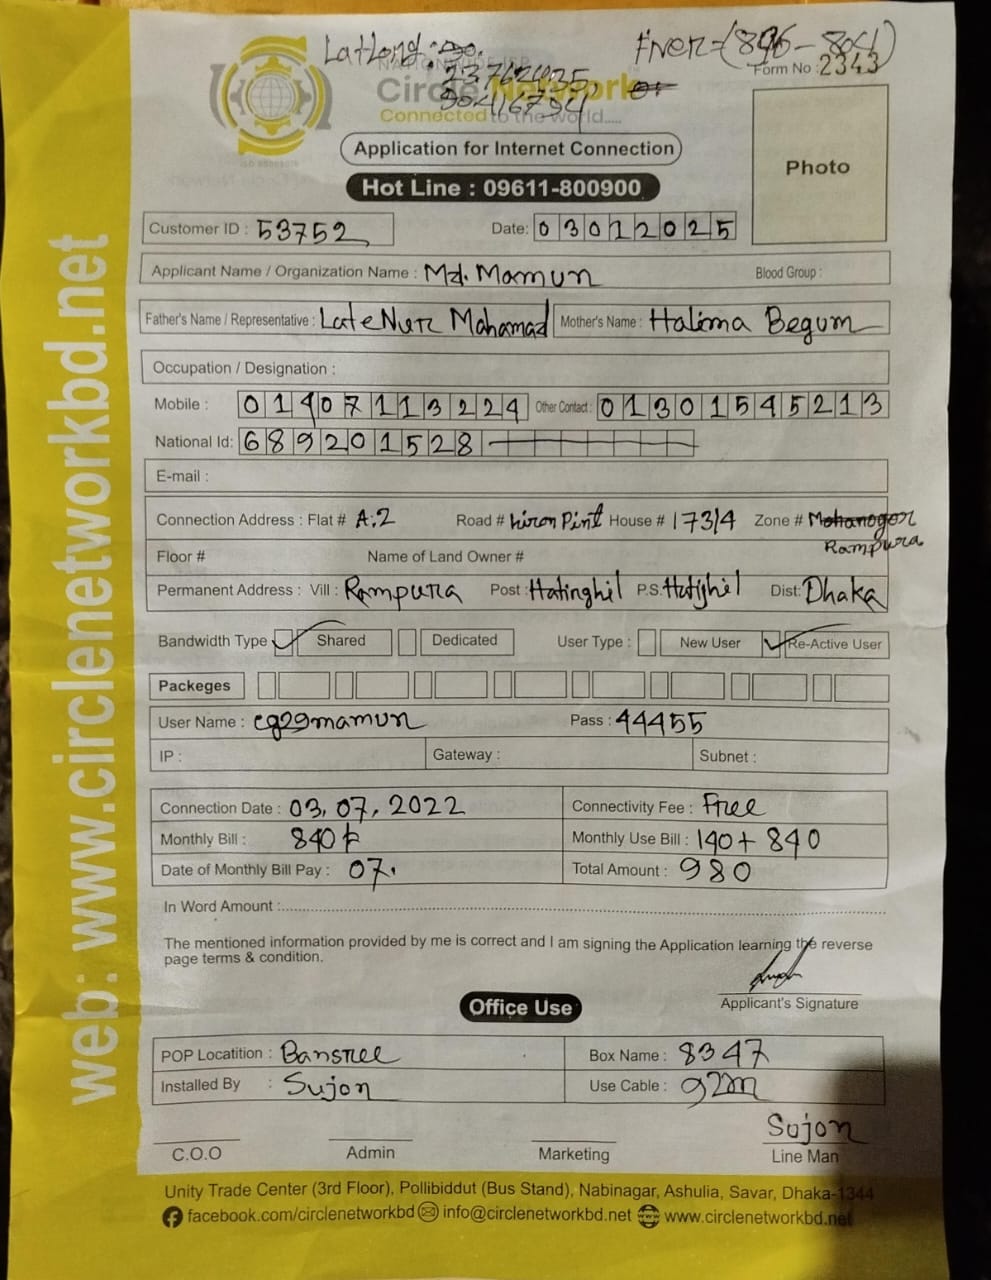 LatLong:
23.762425,
90.416794
Fiver=(896-804)
Form No : 2343
Circle Network
Connected to the world.....
Application for Internet Connection
Photo
Hot Line : 09611-800900
Customer ID : 53752
Date: 03012025
Applicant Name / Organization Name : Md. Mamun Blood Group :
Father's Name / Representative : Late Nur Mohamad Mother's Name : Halima Begum
Occupation / Designation :
Mobile : 01407113224 Other Contact : 01301545213
National Id: 689201528
E-mail :
Connection Address : Flat # A:2 Road # House # 173/4 Zone # Mohanogor
Rampura
Floor # Name of Land Owner #
Permanent Address : Vill : Rampura Post : Hatinghil P.S. Hatijhil Dist: Dhaka
Bandwidth Type Shared Dedicated User Type : New User Re-Active User
Packeges
User Name : cg29mamun Pass : 44455
IP : Gateway : Subnet :
Connection Date : 03,07,2022 Connectivity Fee : Free
Monthly Bill : 840 Monthly Use Bill : 140 + 840
Date of Monthly Bill Pay : 07. Total Amount : 980
In Word Amount :
The mentioned information provided by me is correct and I am signing the Application learning the reverse
page terms & condition.
Applicant's Signature
Office Use
POP Locatition : Bansree Box Name : 8347
Installed By : Sujon Use Cable : 92m
Sujon
C.O.O Admin Marketing Line Man
Unity Trade Center (3rd Floor), Pollibiddut (Bus Stand), Nabinagar, Ashulia, Savar, Dhaka-1344
facebook.com/circlenetworkbd info@circlenetworkbd.net www.circlenetworkbd.net
web: www.circlenetworkbd.net